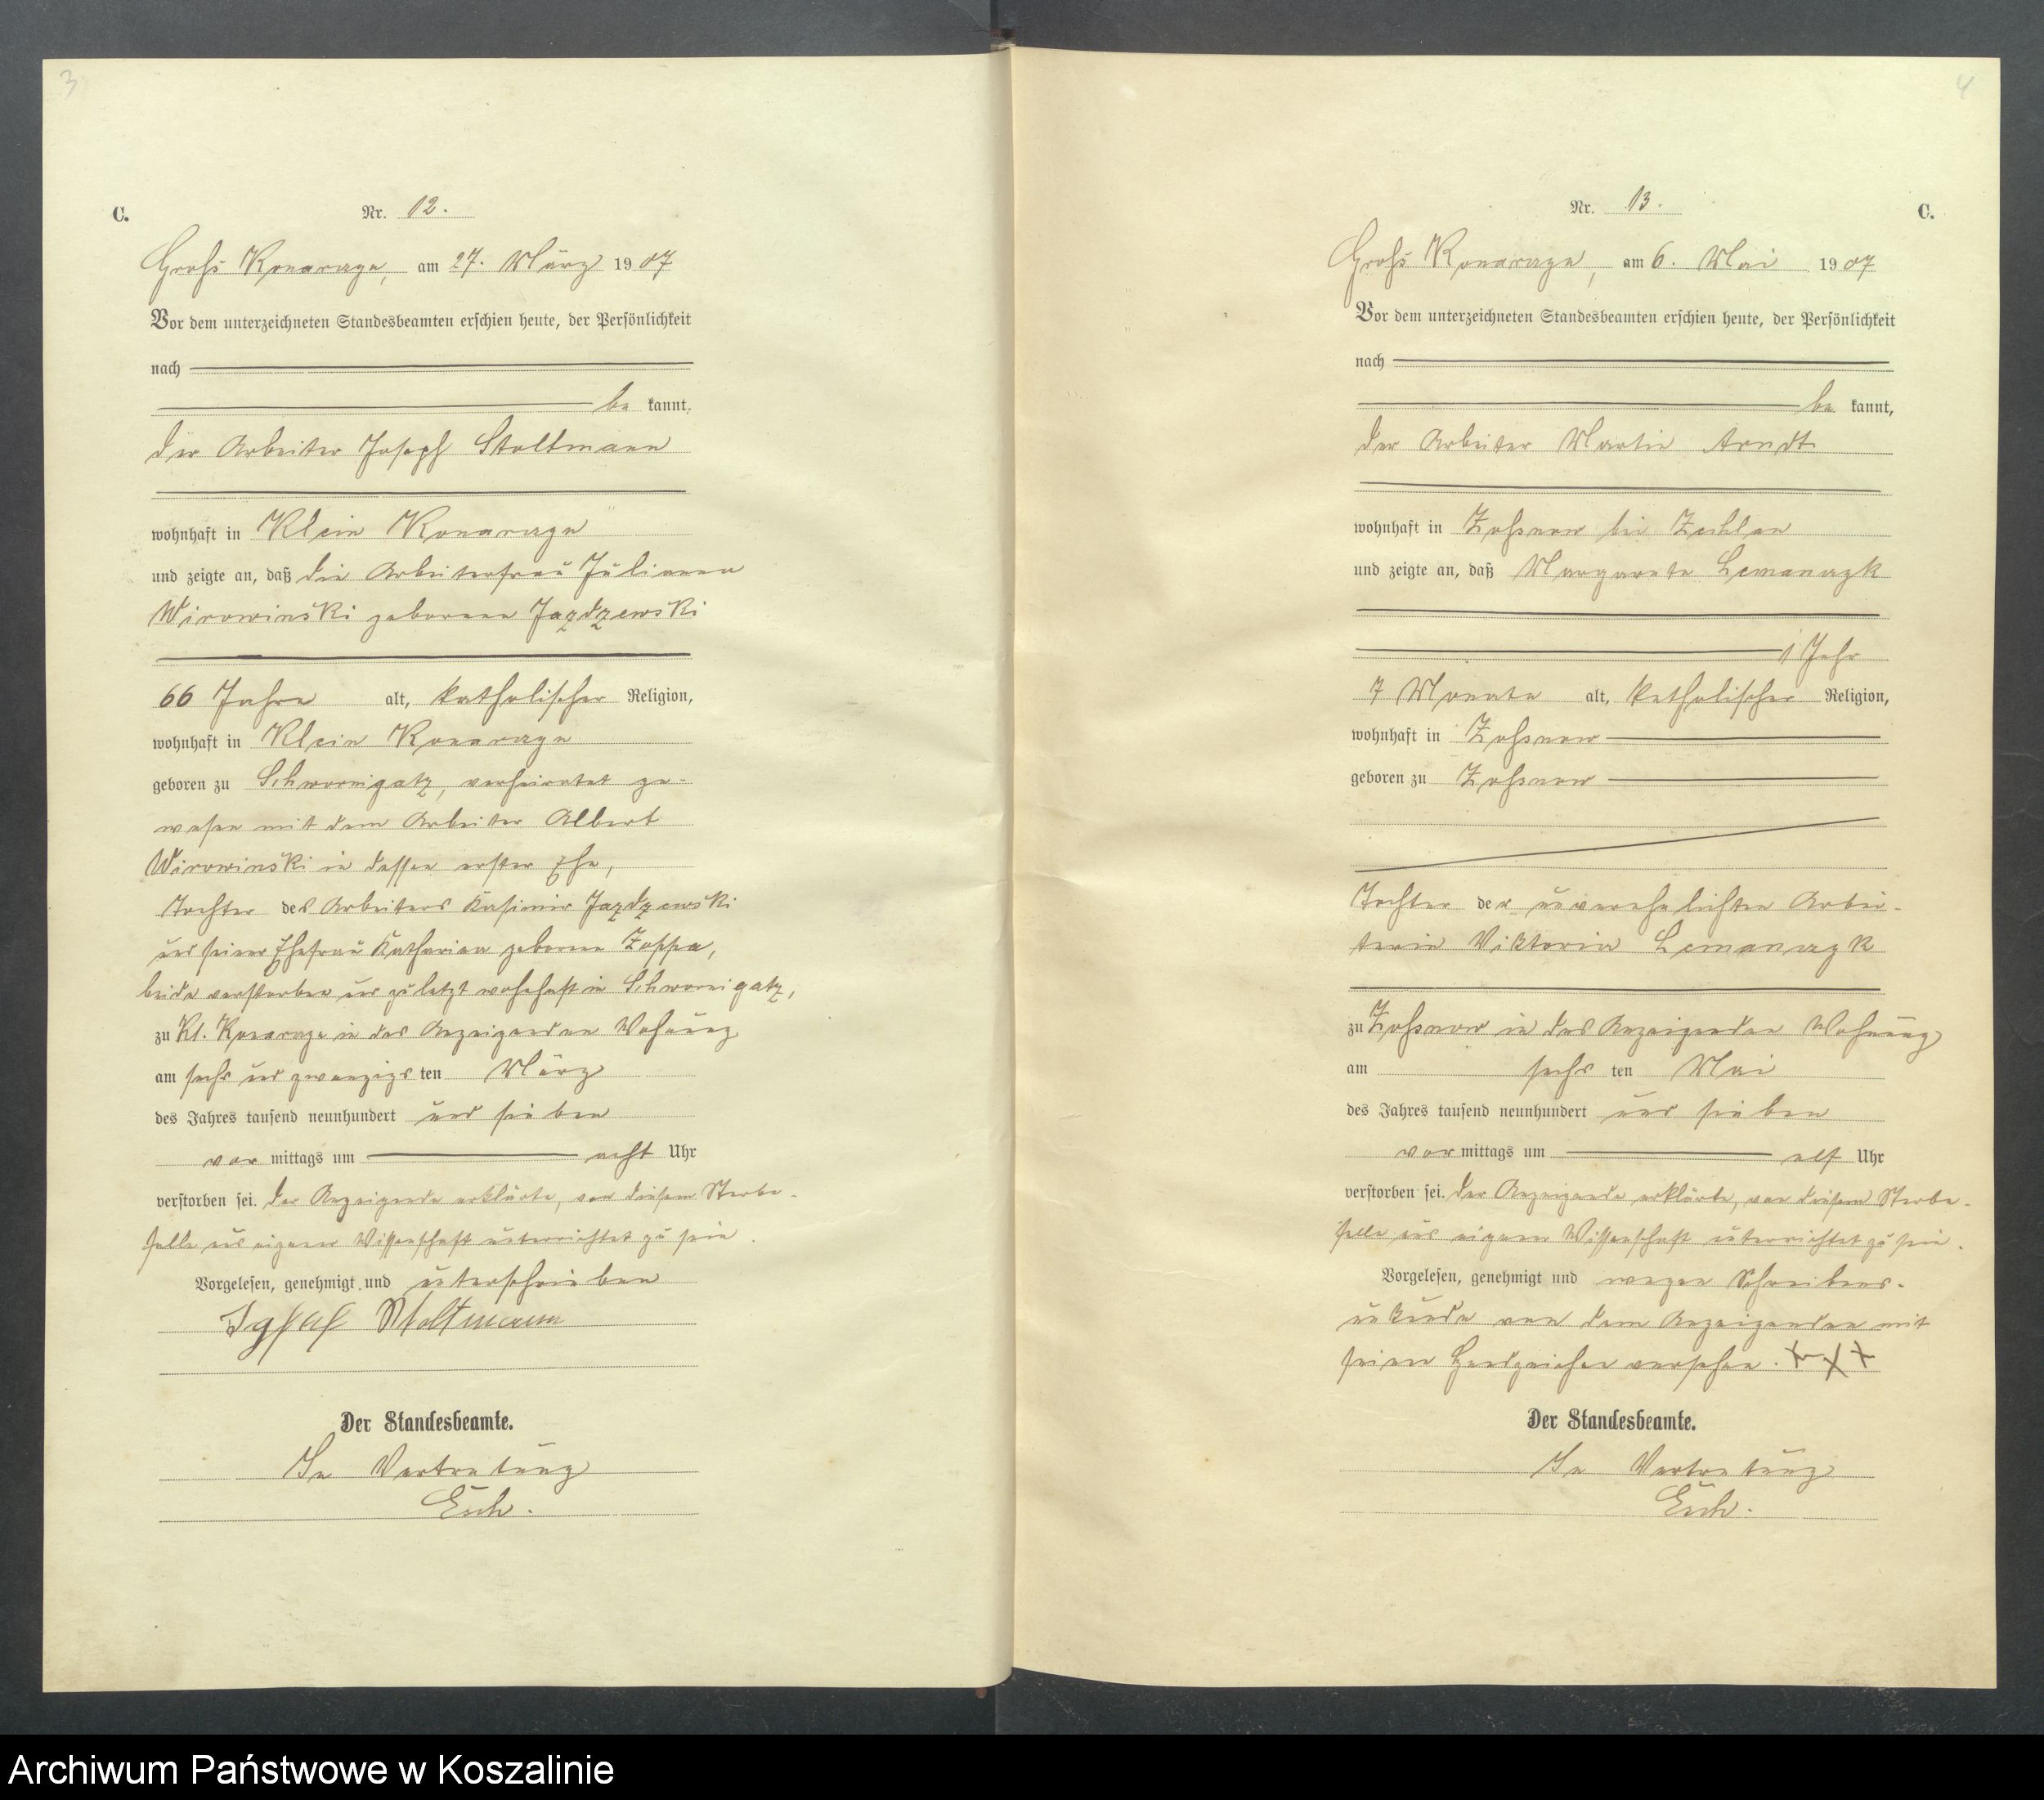 3
C.
Nr. 12.
Groß Konarczyn, am 27. März 1907
Vor dem unterzeichneten Standesbeamten erschien heute, der Persönlichkeit
nach
be kannt,
der Arbeiter Joseph Stoltmann
wohnhaft in Klein Konarczyn
und zeigte an, daß die Arbeiterfrau Julianna
Wirowinski geborene Jazdzewski
66 Jahre alt, katholischer Religion,
wohnhaft in Klein Konarczyn
geboren zu Schwornigatz, verheiratet ge-
wesen mit dem Arbeiter Albert
Wirowinski in dessen erster Ehe,
Tochter des Arbeiters Kasimir Jazdzewski
und seiner Ehefrau Katharina geborene
beide verstorben und zuletzt wohnhaft in Schwornigatz,
zu Kl. Konarczyn in des Anzeigenden Wohnung
am sechs und zwanzigsten März
des Jahres tausend neunhundert und sieben
vor mittags um acht Uhr
verstorben sei. Der Anzeigende erklärte, von diesem Sterbe-
falle aus eigener Wissenschaft unterrichtet zu sein.
Vorgelesen, genehmigt und unterschrieben
Josef Stoltmann
Der Standesbeamte.
In Vertretung
Esch.
4
Nr. 13.
C.
Groß Konarczyn, am 6. Mai 1907
Vor dem unterzeichneten Standesbeamten erschien heute, der Persönlichkeit
nach
be kannt,
der Arbeiter Martin Arndt
wohnhaft in Zoßnow bei Zechlau
und zeigte an, daß Margarete Lemanczyk
1 Jahr
7 Monate alt, katholischer Religion,
wohnhaft in Zoßnow
geboren zu Zoßnow
Tochter der unverehelichten Arbei-
terin Viktoria Lemanczyk
zu Zoßnow in des Anzeigenden Wohnung
am sechs ten Mai
des Jahres tausend neunhundert und sieben
vor mittags um elf Uhr
verstorben sei. Der Anzeigende erklärte, von diesem Sterbe-
falle aus eigener Wissenschaft unterrichtet zu sein.
Vorgelesen, genehmigt und wegen Schreibens-
unkunde von dem Anzeigenden mit
seinem Handzeichen versehen. +++
Der Standesbeamte.
In Vertretung
Esch.
Archiwum Państwowe w Koszalinie